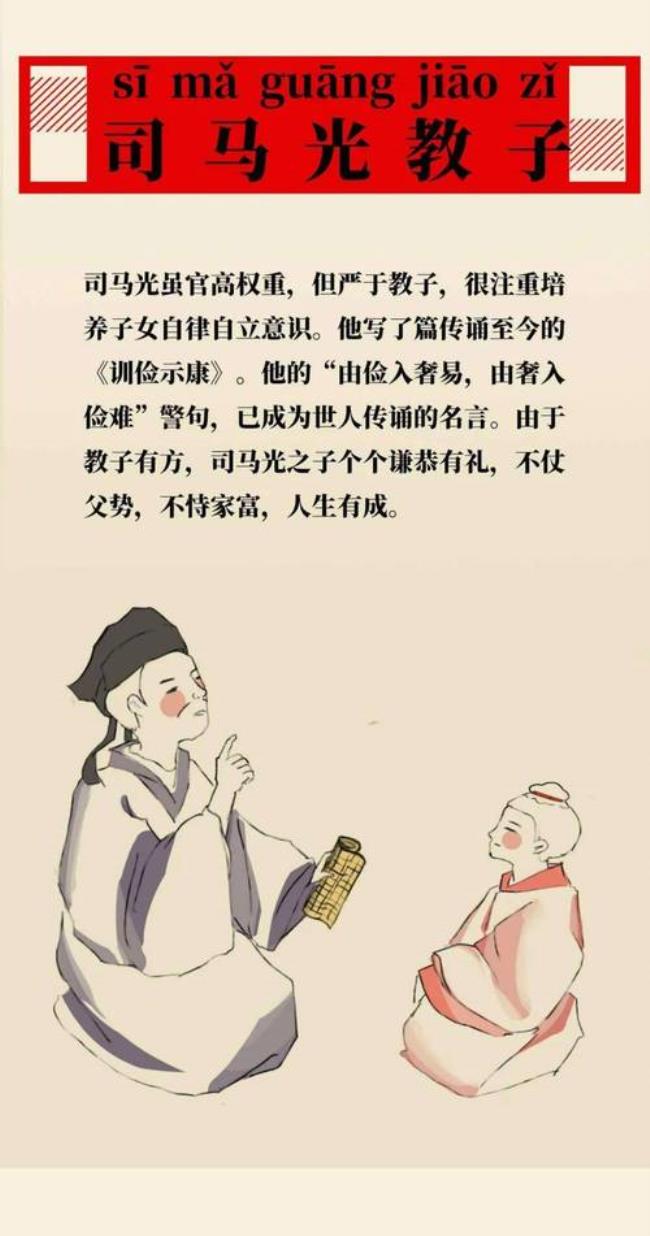 sī mǎ guāng jiāo zǐ
司马光教子
司马光虽官高权重，但严于教子，很注重培
养子女自律自立意识。他写了篇传诵至今的
《训俭示康》。他的“由俭入奢易，由奢入
俭难”警句，已成为世人传诵的名言。由于
教子有方，司马光之子个个谦恭有礼，不仗
父势，不恃家富，人生有成。